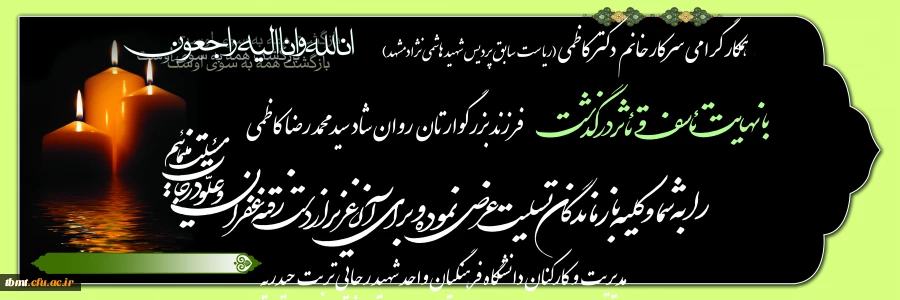 انا لله وانا الیه راجعون
بازگشت همه به سوی اوست
همکار گرامی سرکار خانم دکتر کاظمی (ریاست سابق پردیس شهید هاشمی نژاد مشهد)
با نهایت تأسف و تأثر درگذشت فرزند بزرگوارتان روان شاد سید محمد رضا کاظمی
را به شما و کلیه بازماندگان تسلیت عرض نموده و برای آن عزیز از دست رفته غفران و علو درجات مسئلت مینمائیم
مدیریت و کارکنان دانشگاه فرهنگیان واحد شهید رجائی تربت حیدریه
tbmt.cfu.ac.ir